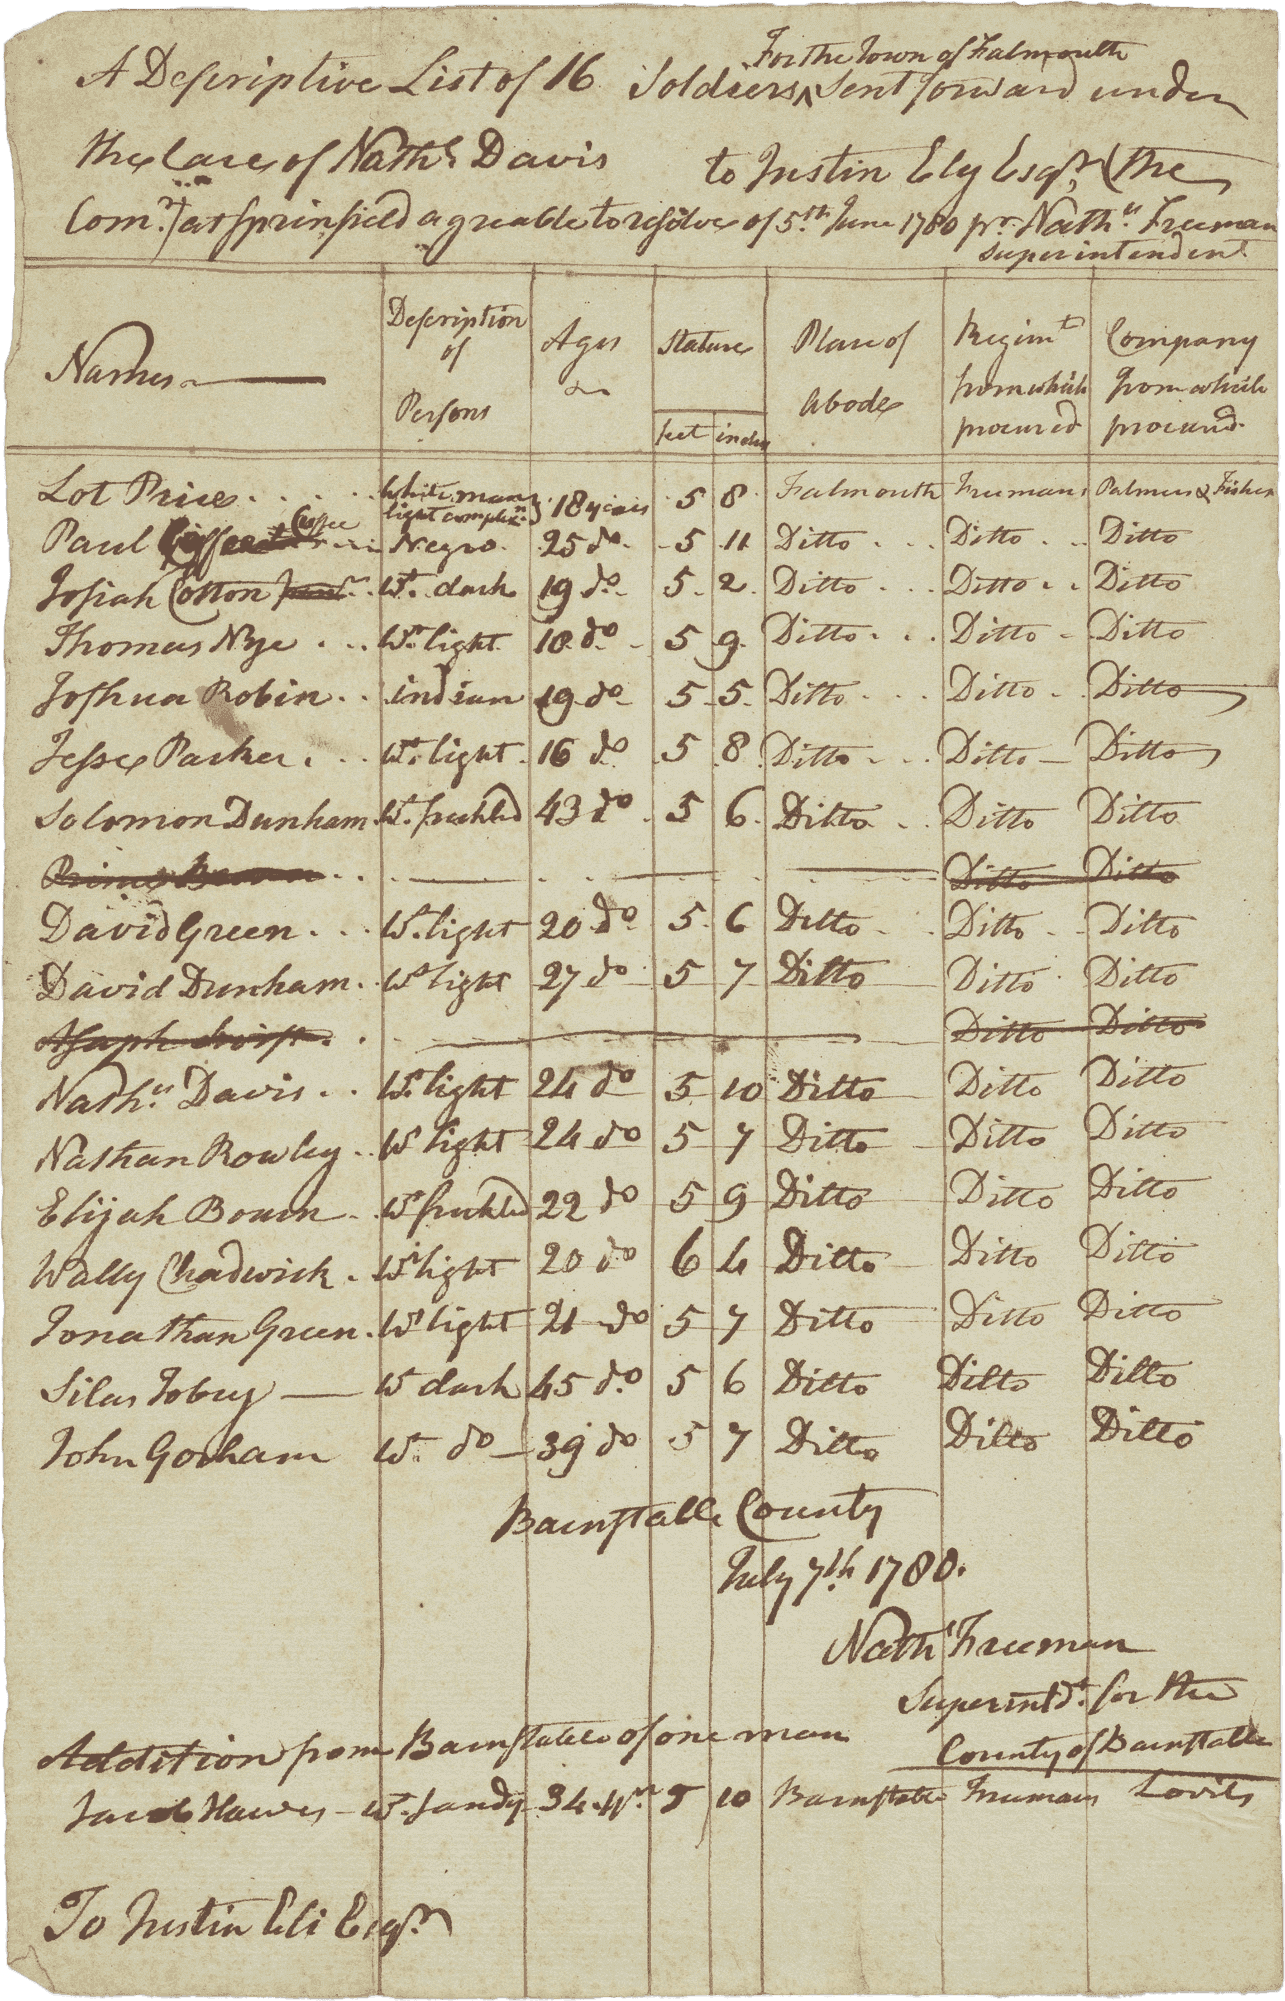 For the Town of Falmouth
A Descriptive List of 16 Soldiers ^ Sent forward under
the Care of Nathl Davis to Justin Ely Esqr, (the
Comr.) at Sprinfield agreable to resolve of 5th. June 1780 pr. Nathll. Freeman
Superintendent
Names Description of Persons Ages Stature feet inches Place of Abode Regimt from which procured Company from which procured.
Lot Price . . . . White man light complexn } 18 years 5 8 Falmouth Freemans Palmers & Fishes
Paul Cuffee Negro. 25 do. 5 11 Ditto Ditto Ditto
Josiah Cotton Wt. dark 19 do 5 2 Ditto Ditto Ditto
Thomas Nye Wt. light 18 do 5 9 Ditto Ditto Ditto
Joshua Robin indian 19 do 5 5 Ditto Ditto Ditto
Jesse Parker Wt. light 16 do 5 8 Ditto Ditto Ditto
Solomon Dunham Wt. freckled 43 do 5 6 Ditto Ditto Ditto
Prince Brown Ditto Ditto
David Green Wt. light 20 do 5 6 Ditto Ditto Ditto
David Dunham Wt light 27 do 5 7 Ditto Ditto Ditto
Asaph Swift Ditto Ditto
Nathll. Davis Wt. light 24 do 5 10 Ditto Ditto Ditto
Nathan Rowley W light 24 do 5 7 Ditto Ditto Ditto
Elijah Bourn Wt freckled 22 do 5 9 Ditto Ditto Ditto
Wally Chadwick Wt light 20 do 6 4 Ditto Ditto Ditto
Jonathan Green Wt light 21 do 5 7 Ditto Ditto Ditto
Silas Tobey W dark 45 do 5 6 Ditto Ditto Ditto
John Gorham W. do 39 do 5 7 Ditto Ditto Ditto
Barnstable County
July 7th. 1780.
Nathl Freeman
Superintdt. for the
County of Barnstable
Addition from Barnstable of one man
Jacob Hawes Wt. Sandy 34 yr. 5 10 Barnstable Freemans Lovils
To Justin Eli Esqr.